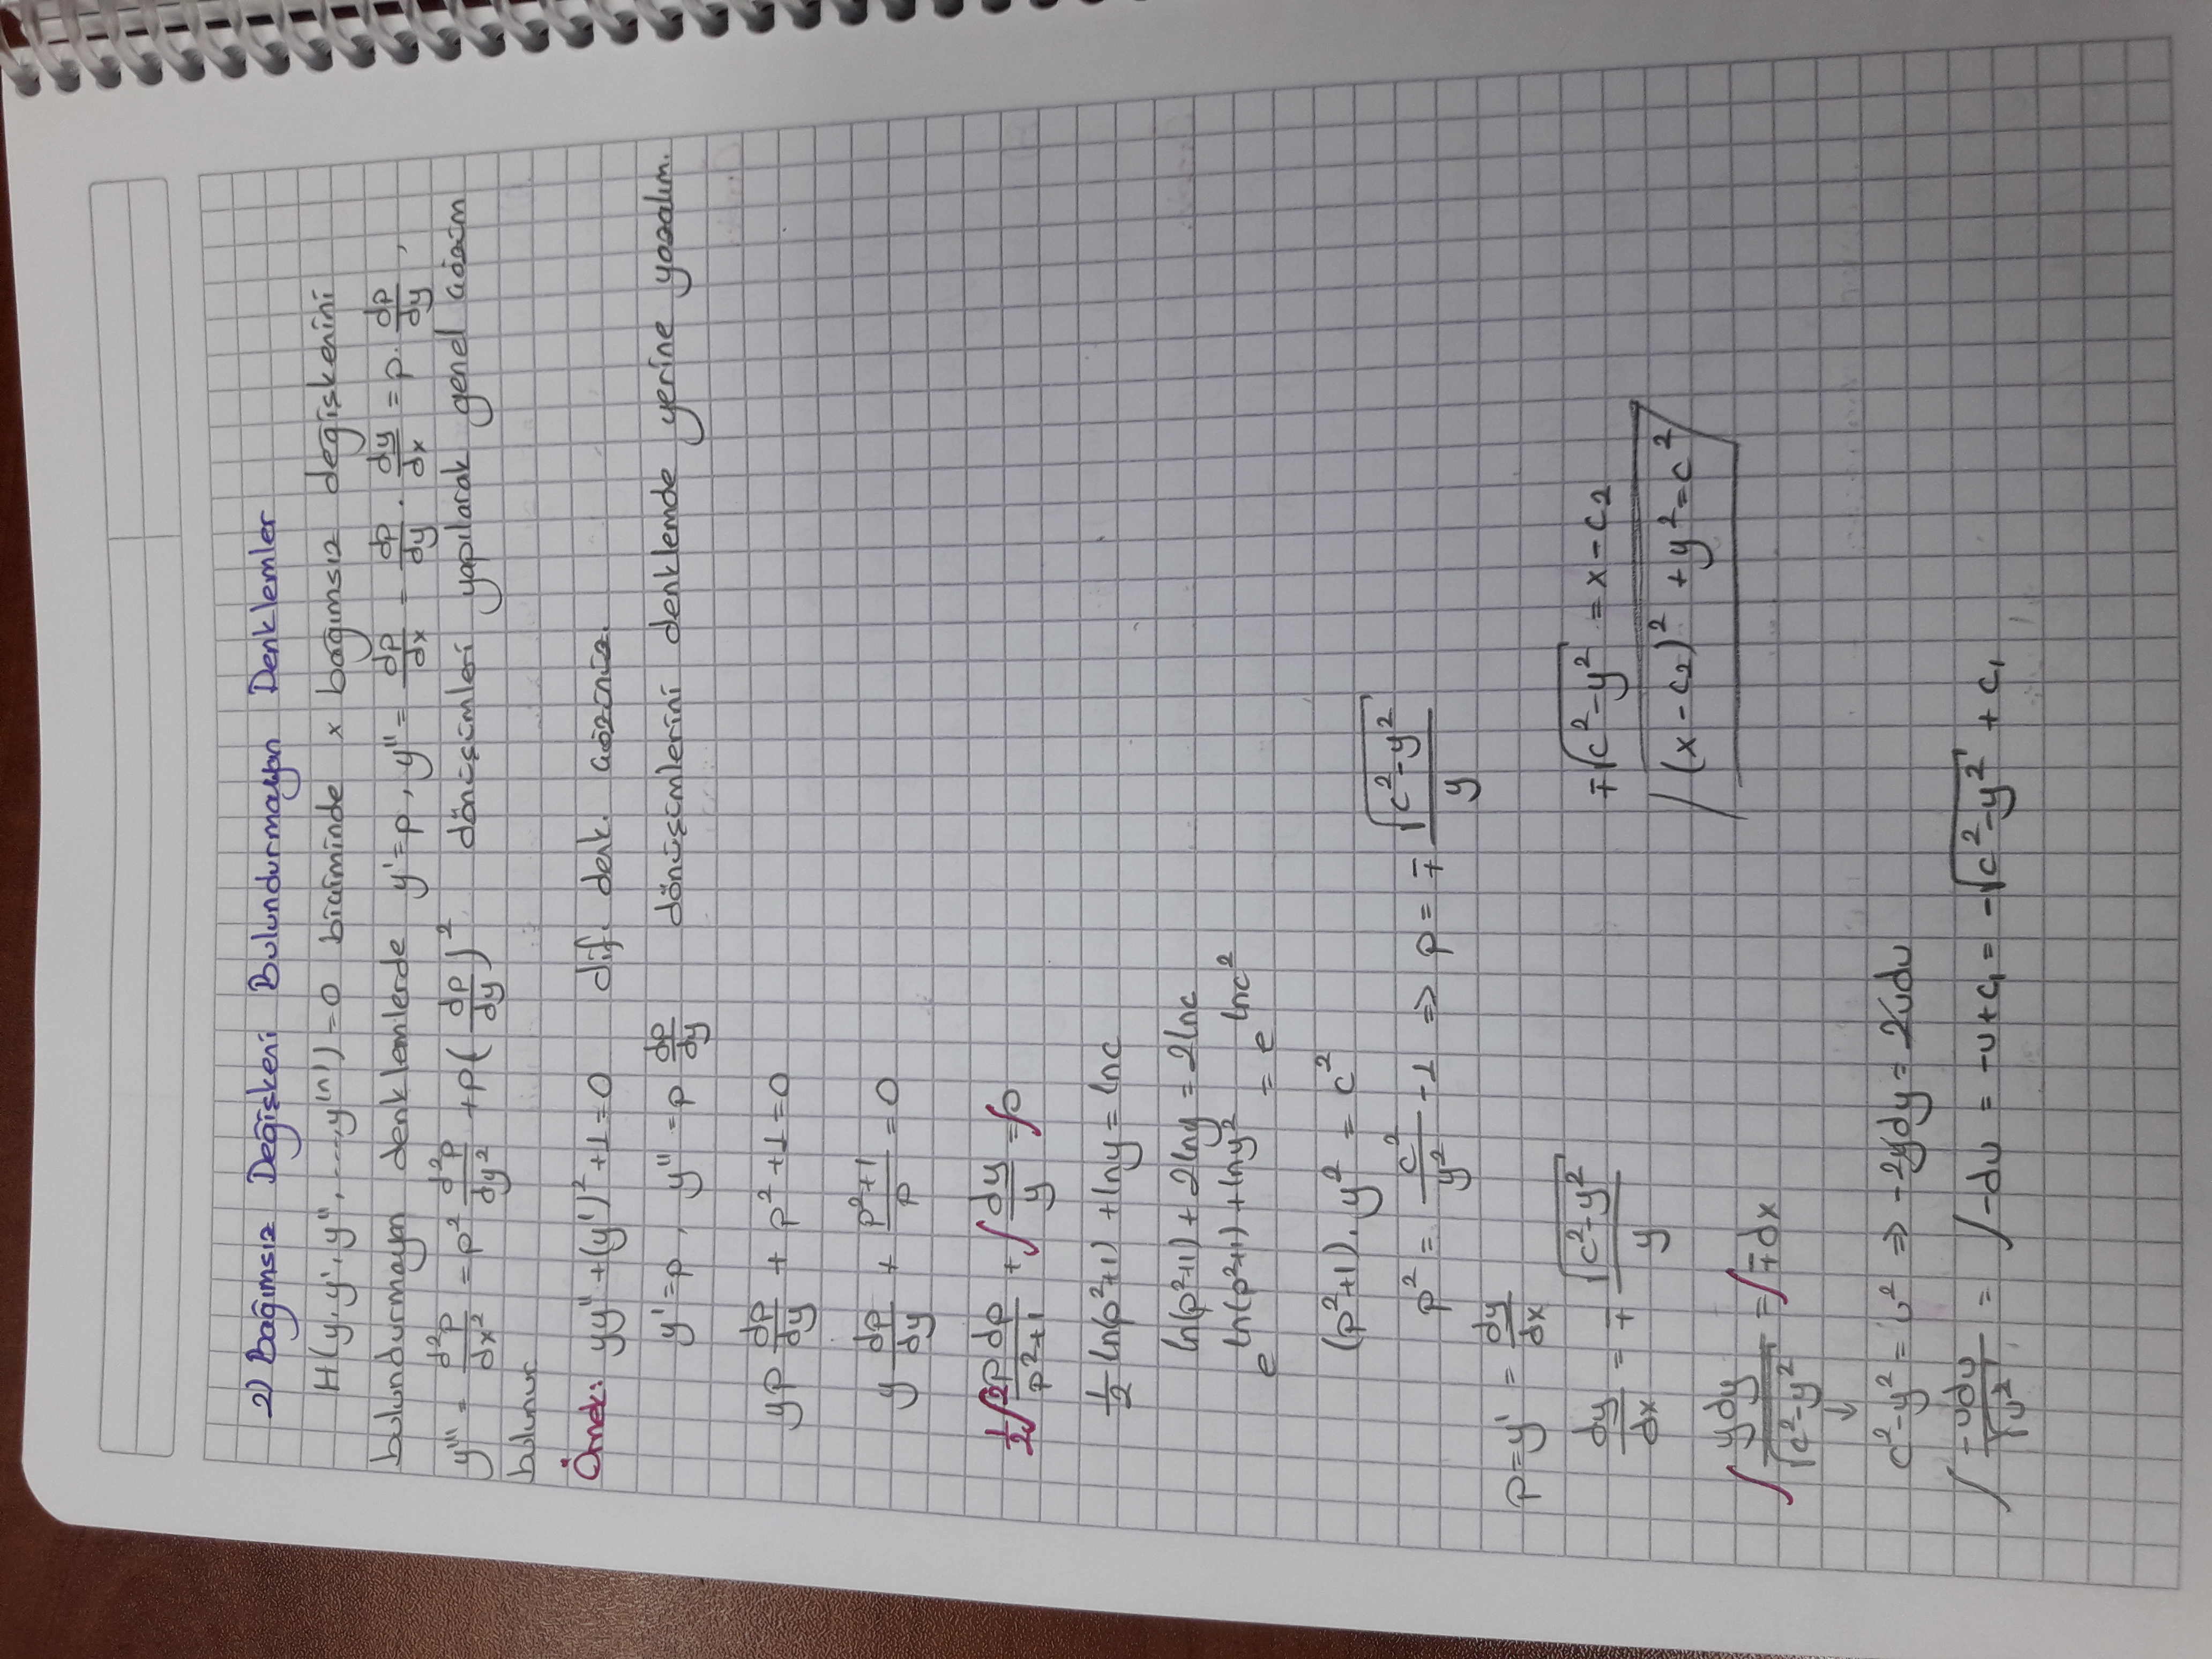 2) Bağımsız Değişkeni Bulundurmayan Denklemler
H(y, y', y'', ..., y⁽ⁿ⁾) = 0 biçiminde x bağımsız değişkenini
bulundurmayan denklemlerde y' = p, y'' = dp/dx = dp/dy · dy/dx = p · dp/dy,
y''' = d²p/dx² = p² d²p/dy² + p(dp/dy)² dönüşümleri yapılarak genel çözüm
bulunur
Örnek: yy'' + (y')² + 1 = 0 dif. denk. çözünüz.
y' = p, y'' = p dp/dy dönüşümlerini denklemde yerine yazalım.
yp dp/dy + p² + 1 = 0
y dp/dy + (p²+1)/p = 0
1/2 ∫ 2p dp/(p²+1) + ∫ dy/y = ∫0
1/2 ln(p²+1) + lny = lnc
ln(p²+1) + 2lny = 2lnc
e^(ln(p²+1) + lny²) = e^(lnc²)
(p²+1) · y² = c²
p² = c²/y² - 1 ⇒ p = ∓ √(c²-y²)/y
p = y' = dy/dx
dy/dx = ∓ √(c²-y²)/y
∫ ydy/√(c²-y²) = ∫ ∓dx
↓
c²-y² = u² ⇒ -2ydy = 2udu
∫ -udu/√u² = ∫ -du = -u + c₁ = -√(c²-y²) + c₁
∓√(c²-y²) = x - c₂
(x - c₂)² + y² = c²